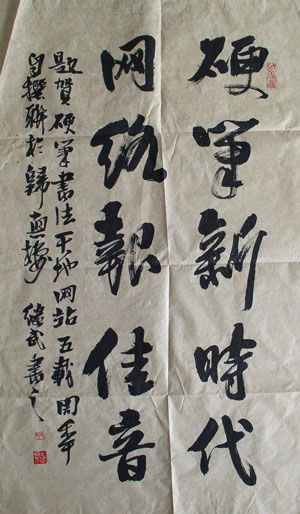 硬筆新時代
网络報佳音
賀硬筆書法天地网站五載周年
自撰聯於歸真樓 書之